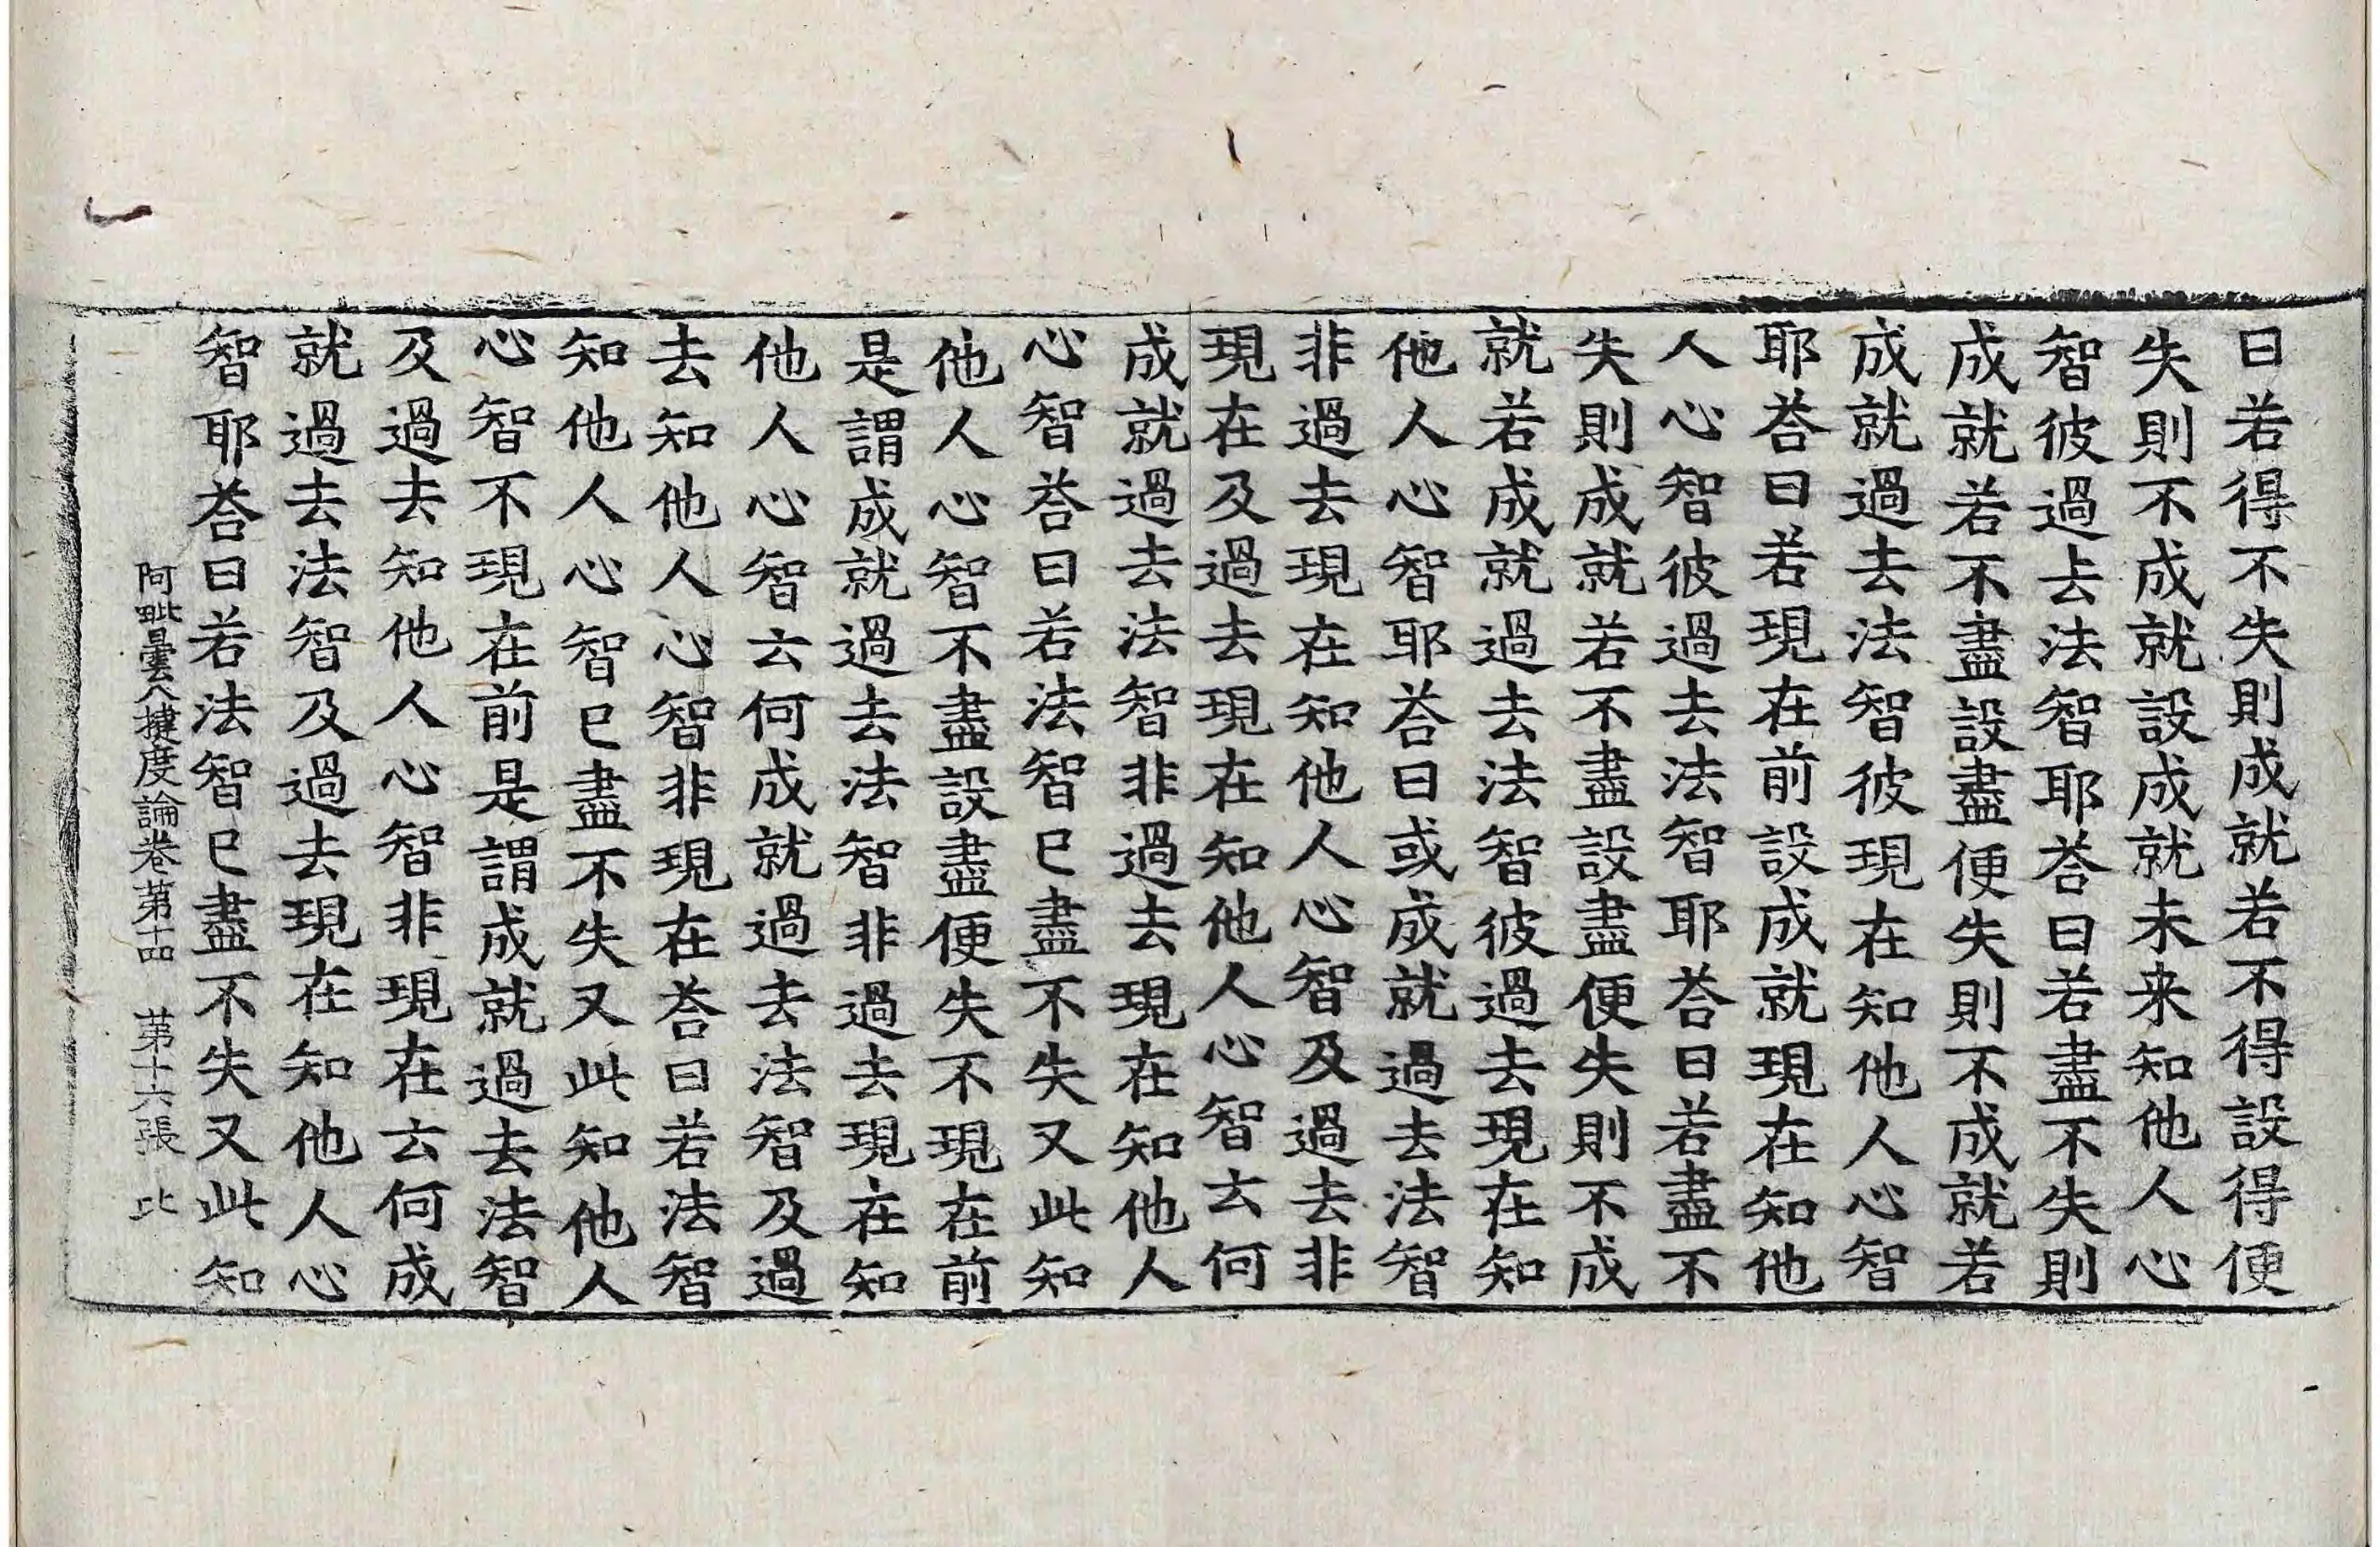 曰若得不失則成就若不得設得便
失則不成就設成就未来知他人心
智彼過去法智耶荅曰若盡不失則
成就若不盡設盡便失則不成就若
成就過去法智彼現在知他人心智
耶荅曰若現在前設成就現在知他
人心智彼過去法智耶荅曰若盡不
失則成就若不盡設盡便失則不成
就若成就過去法智彼過去現在知
他人心智耶荅曰或成就過去法智
非過去現在知他人心智及過去非
現在及過去現在知他人心智云何
成就過去法智非過去現在知他人
心智荅曰若法智已盡不失又此知
他人心智不盡設盡便失不現在前
是謂成就過去法智非過去現在知
他人心智云何成就過去法智及過
去知他人心智非現在荅曰若法智
知他人心智已盡不失又此知他人
心智不現在前是謂成就過去法智
及過去知他人心智非現在云何成
就過去法智及過去現在知他人心
智耶荅曰若法智已盡不失又此知
阿毗曇八揵度論卷第十四 第十六張 比